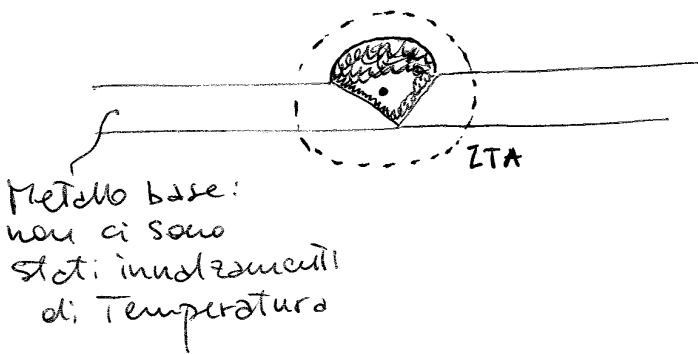 ZTA
Metallo base:
non ci sono
stati innalzamenti
di Temperatura